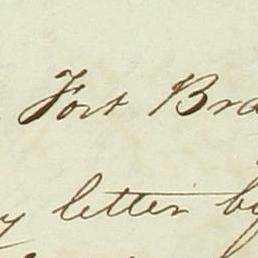 Fort Bra
y letter by